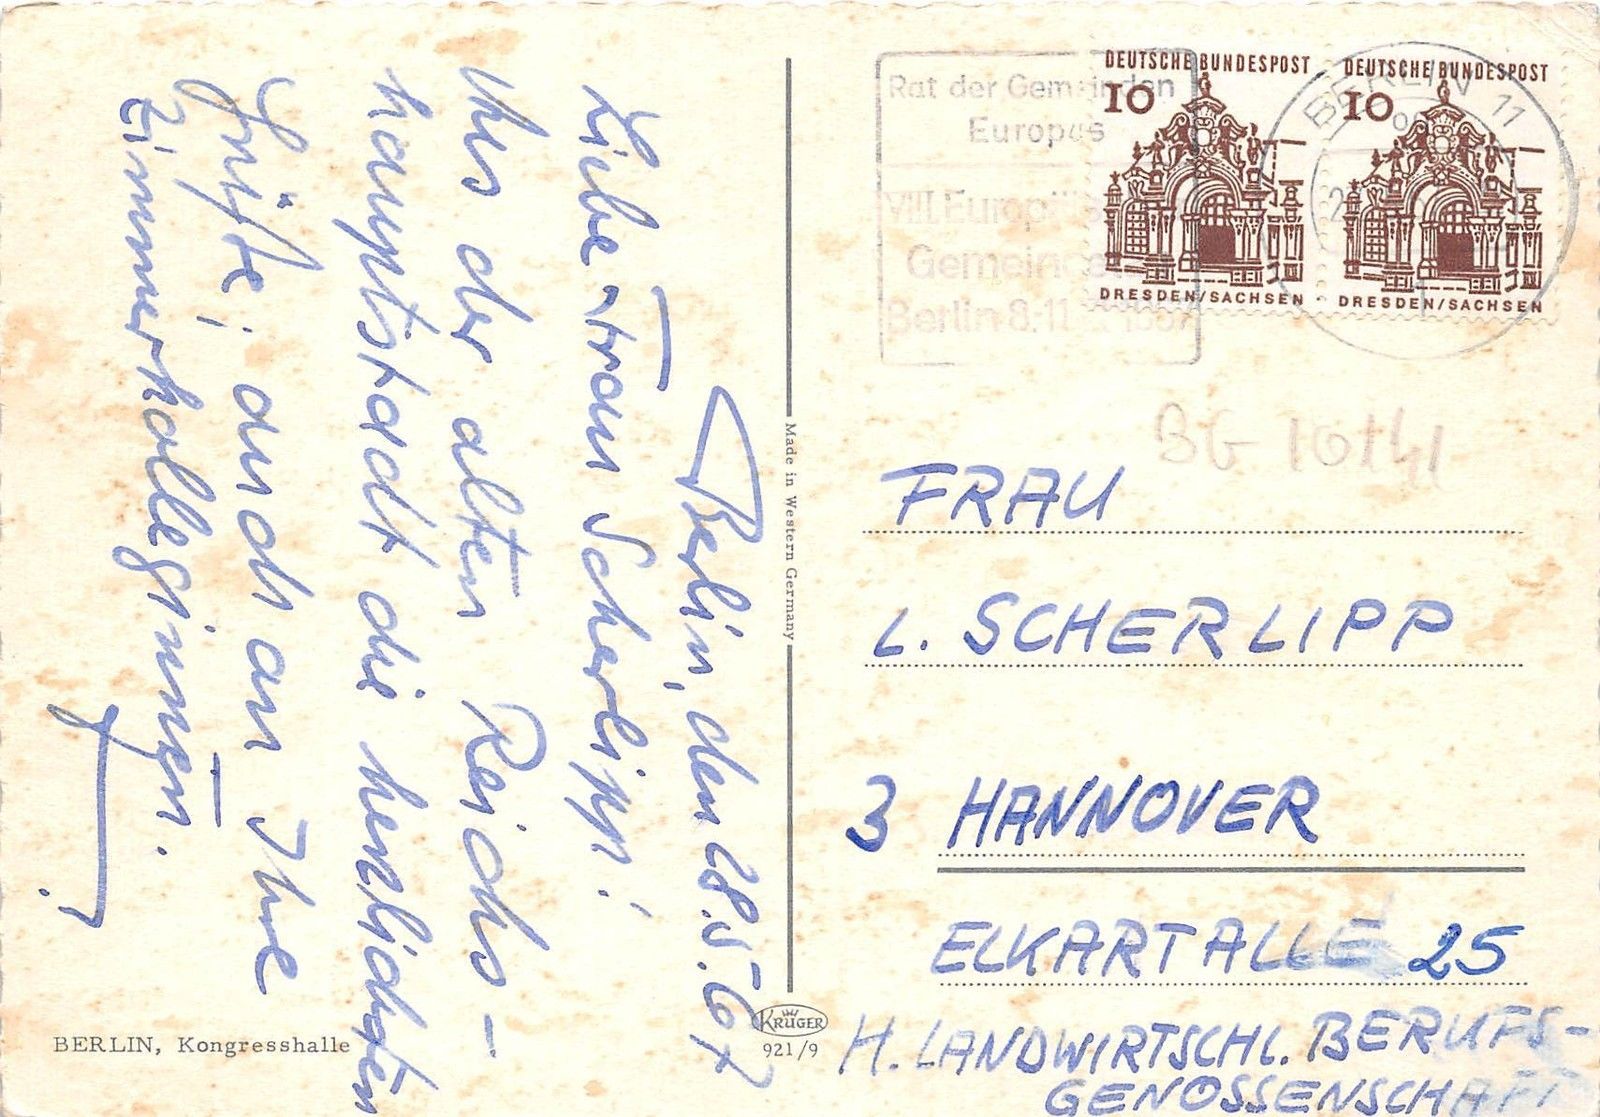 Berlin, den 28.5.67
Liebe Frau Scherlipp!
Aus der alten Reichs-
hauptstadt die herzlichsten
Grüße; auch an Ihre
Zimmerkolleginnen.
BERLIN, Kongresshalle
Made in Western Germany
KRÜGER
921/9
Rat der Gemeinden
Europas
VIII. Europäischer
Gemeindetag
Berlin 8.-11. 1967
DEUTSCHE BUNDESPOST
10
DRESDEN/SACHSEN
DEUTSCHE BUNDESPOST
10
DRESDEN/SACHSEN
BERLIN 11
BG 10141
FRAU
L. SCHERLIPP
3 HANNOVER
ELKARTALLE 25
H. LANDWIRTSCHL. BERUFS-
GENOSSENSCHAFT